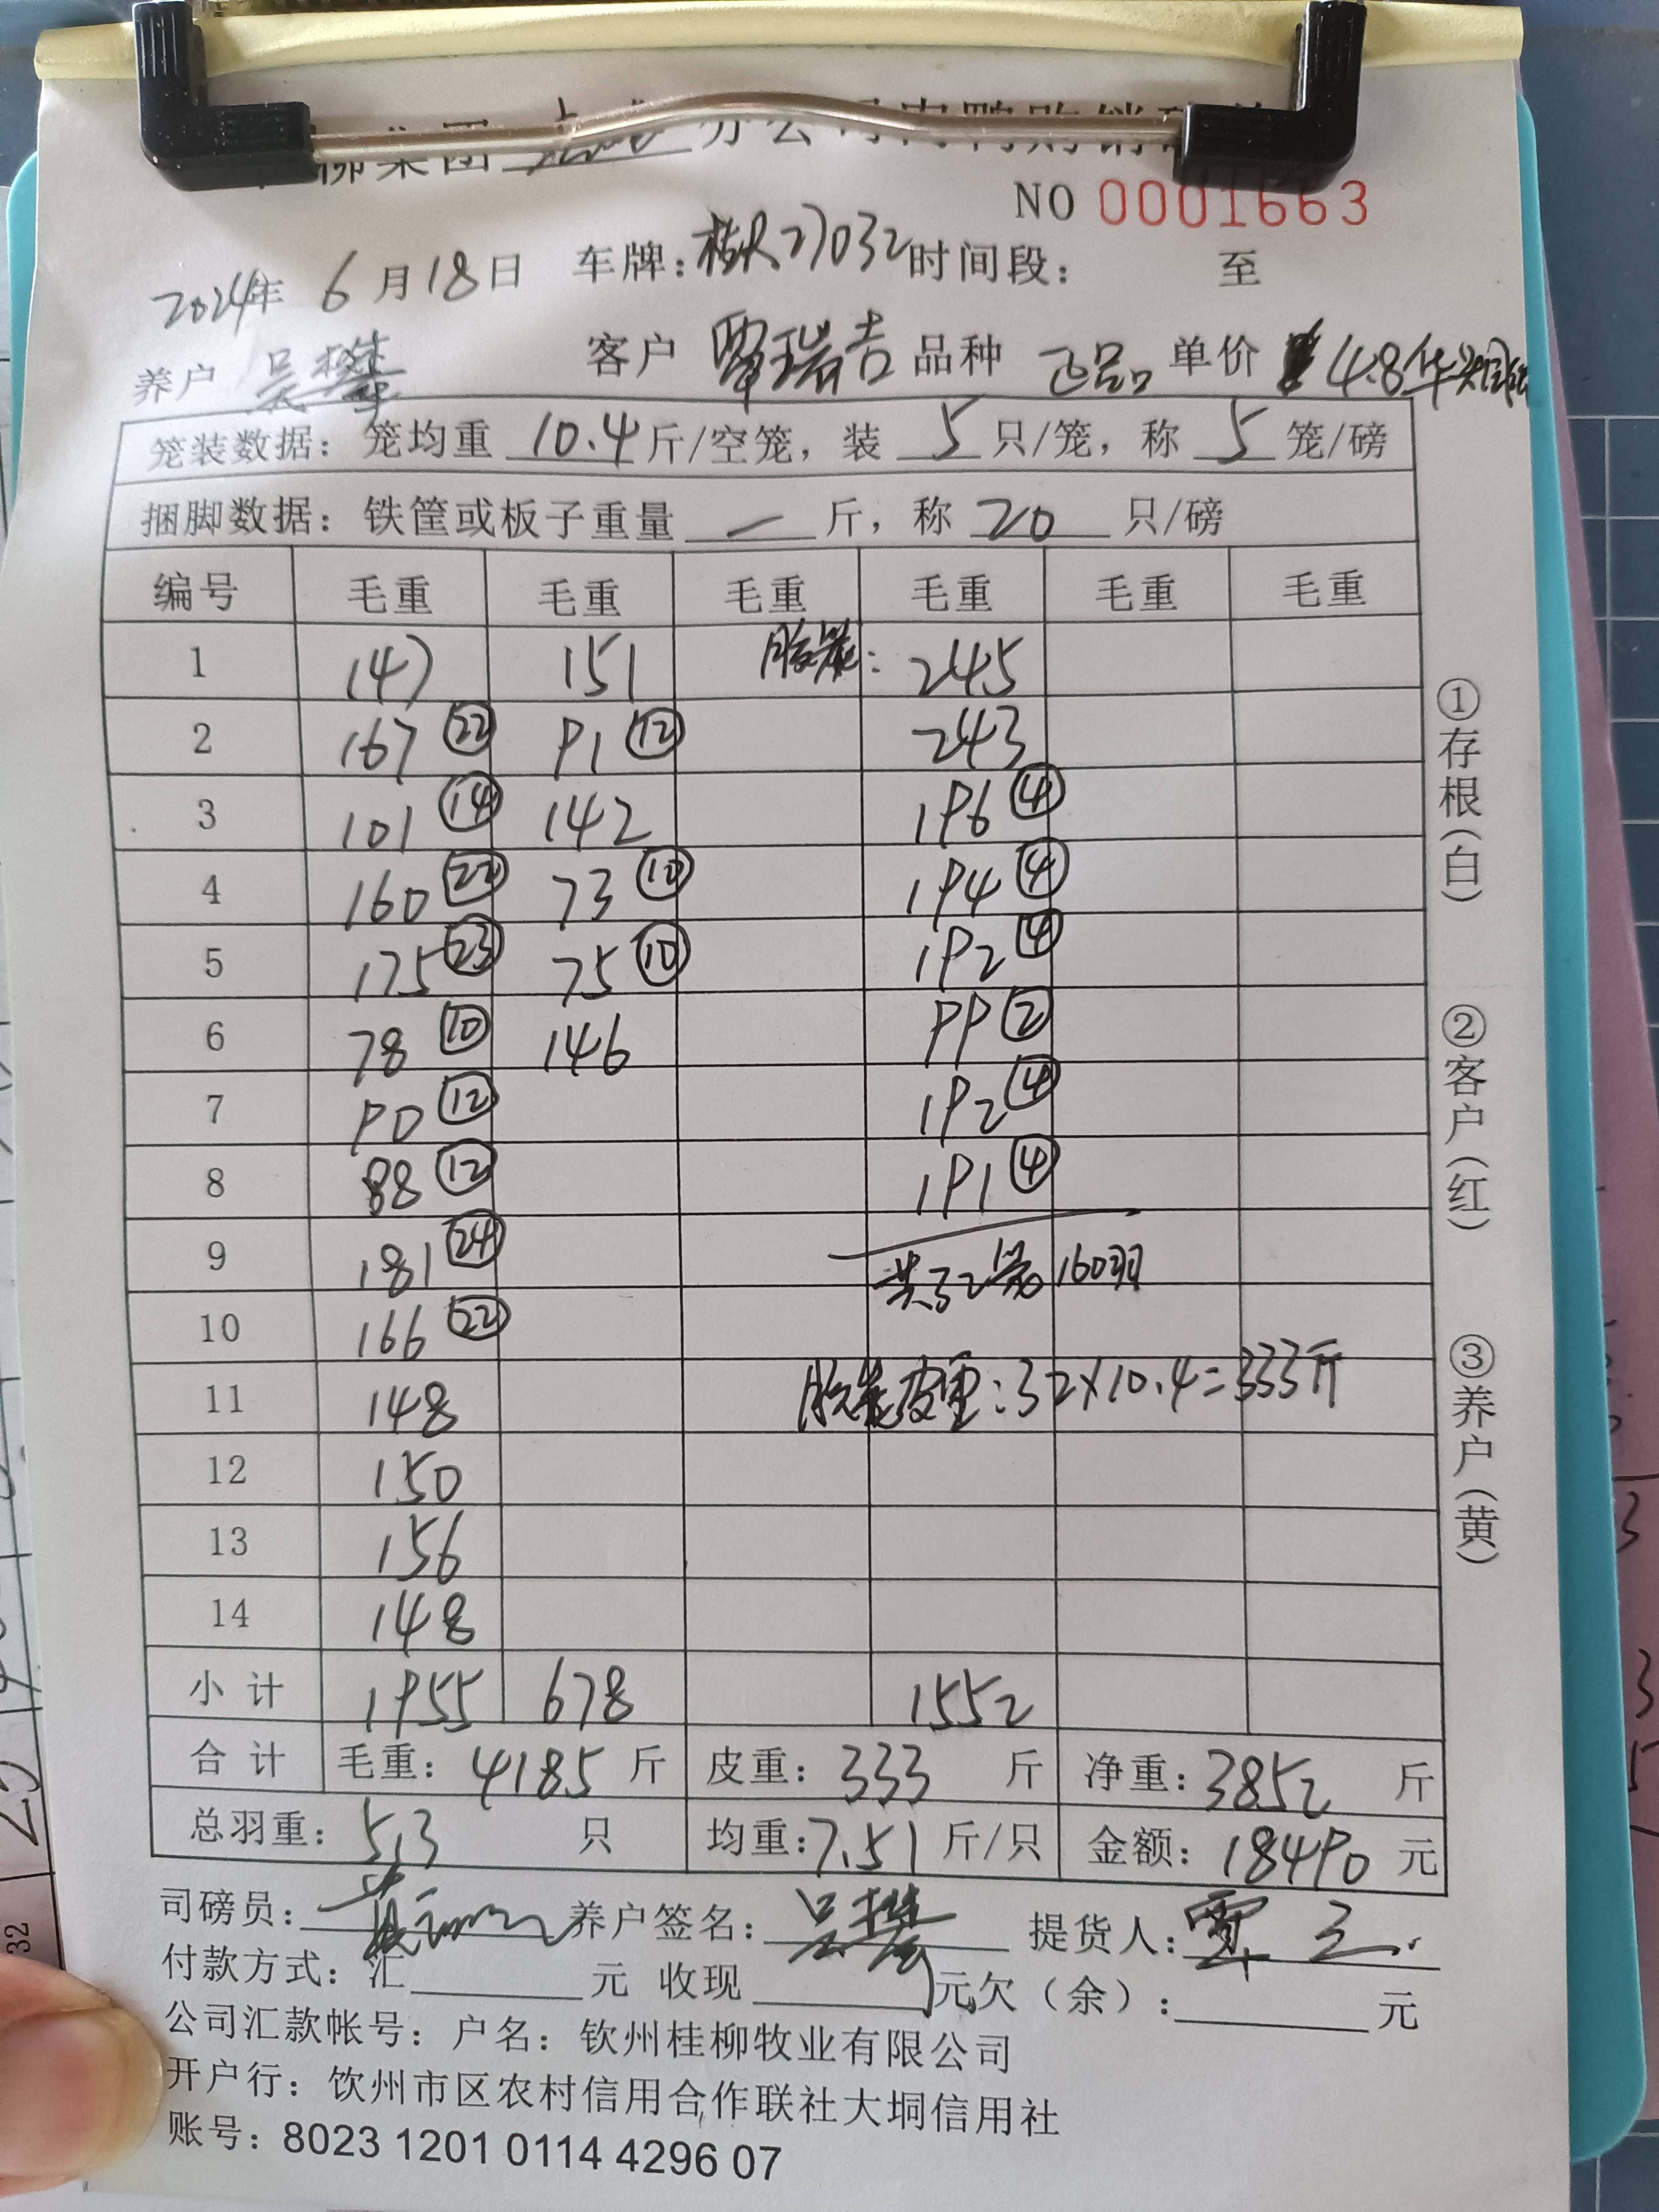 柳集团 分公司肉鸭购销
NO 0001663
2024年 6月18日 车牌: 27032 时间段: 至
养户 吴攀 客户 覃瑞吉 品种 正品 单价 4.8
笼装数据: 笼均重 10.4 斤/空笼, 装 5 只/笼, 称 5 笼/磅
捆脚数据: 铁筐或板子重量 — 斤, 称 20 只/磅
编号 毛重 毛重 毛重 毛重 毛重 毛重
1 147 151 胶笼: 245
2 167 ㉒ 91 ⑫ 243
3 101 ⑭ 142 196 ④
4 160 ㉒ 73 ⑩ 194 ④
5 175 ㉓ 75 ⑩ 192 ④
6 78 ⑩ 146 99 ②
7 90 ⑫ 192 ④
8 88 ⑫ 191 ④
9 181 ㉔ 共32笼 160羽
10 166 ㉒
11 148 胶笼皮重: 32×10.4=333斤
12 150
13 156
14 148
小计 1955 678 1552
合计 毛重: 4185 斤 皮重: 333 斤 净重: 3852 斤
总羽重: 513 只 均重: 7.51 斤/只 金额: 18490 元
司磅员: 养户签名: 吴攀 提货人: 覃
付款方式: 汇 元 收现 元 欠(余): 元
公司汇款帐号: 户名: 钦州桂柳牧业有限公司
开户行: 钦州市区农村信用合作联社大垌信用社
账号: 8023 1201 0114 4296 07
①存根(白)
②客户(红)
③养户(黄)